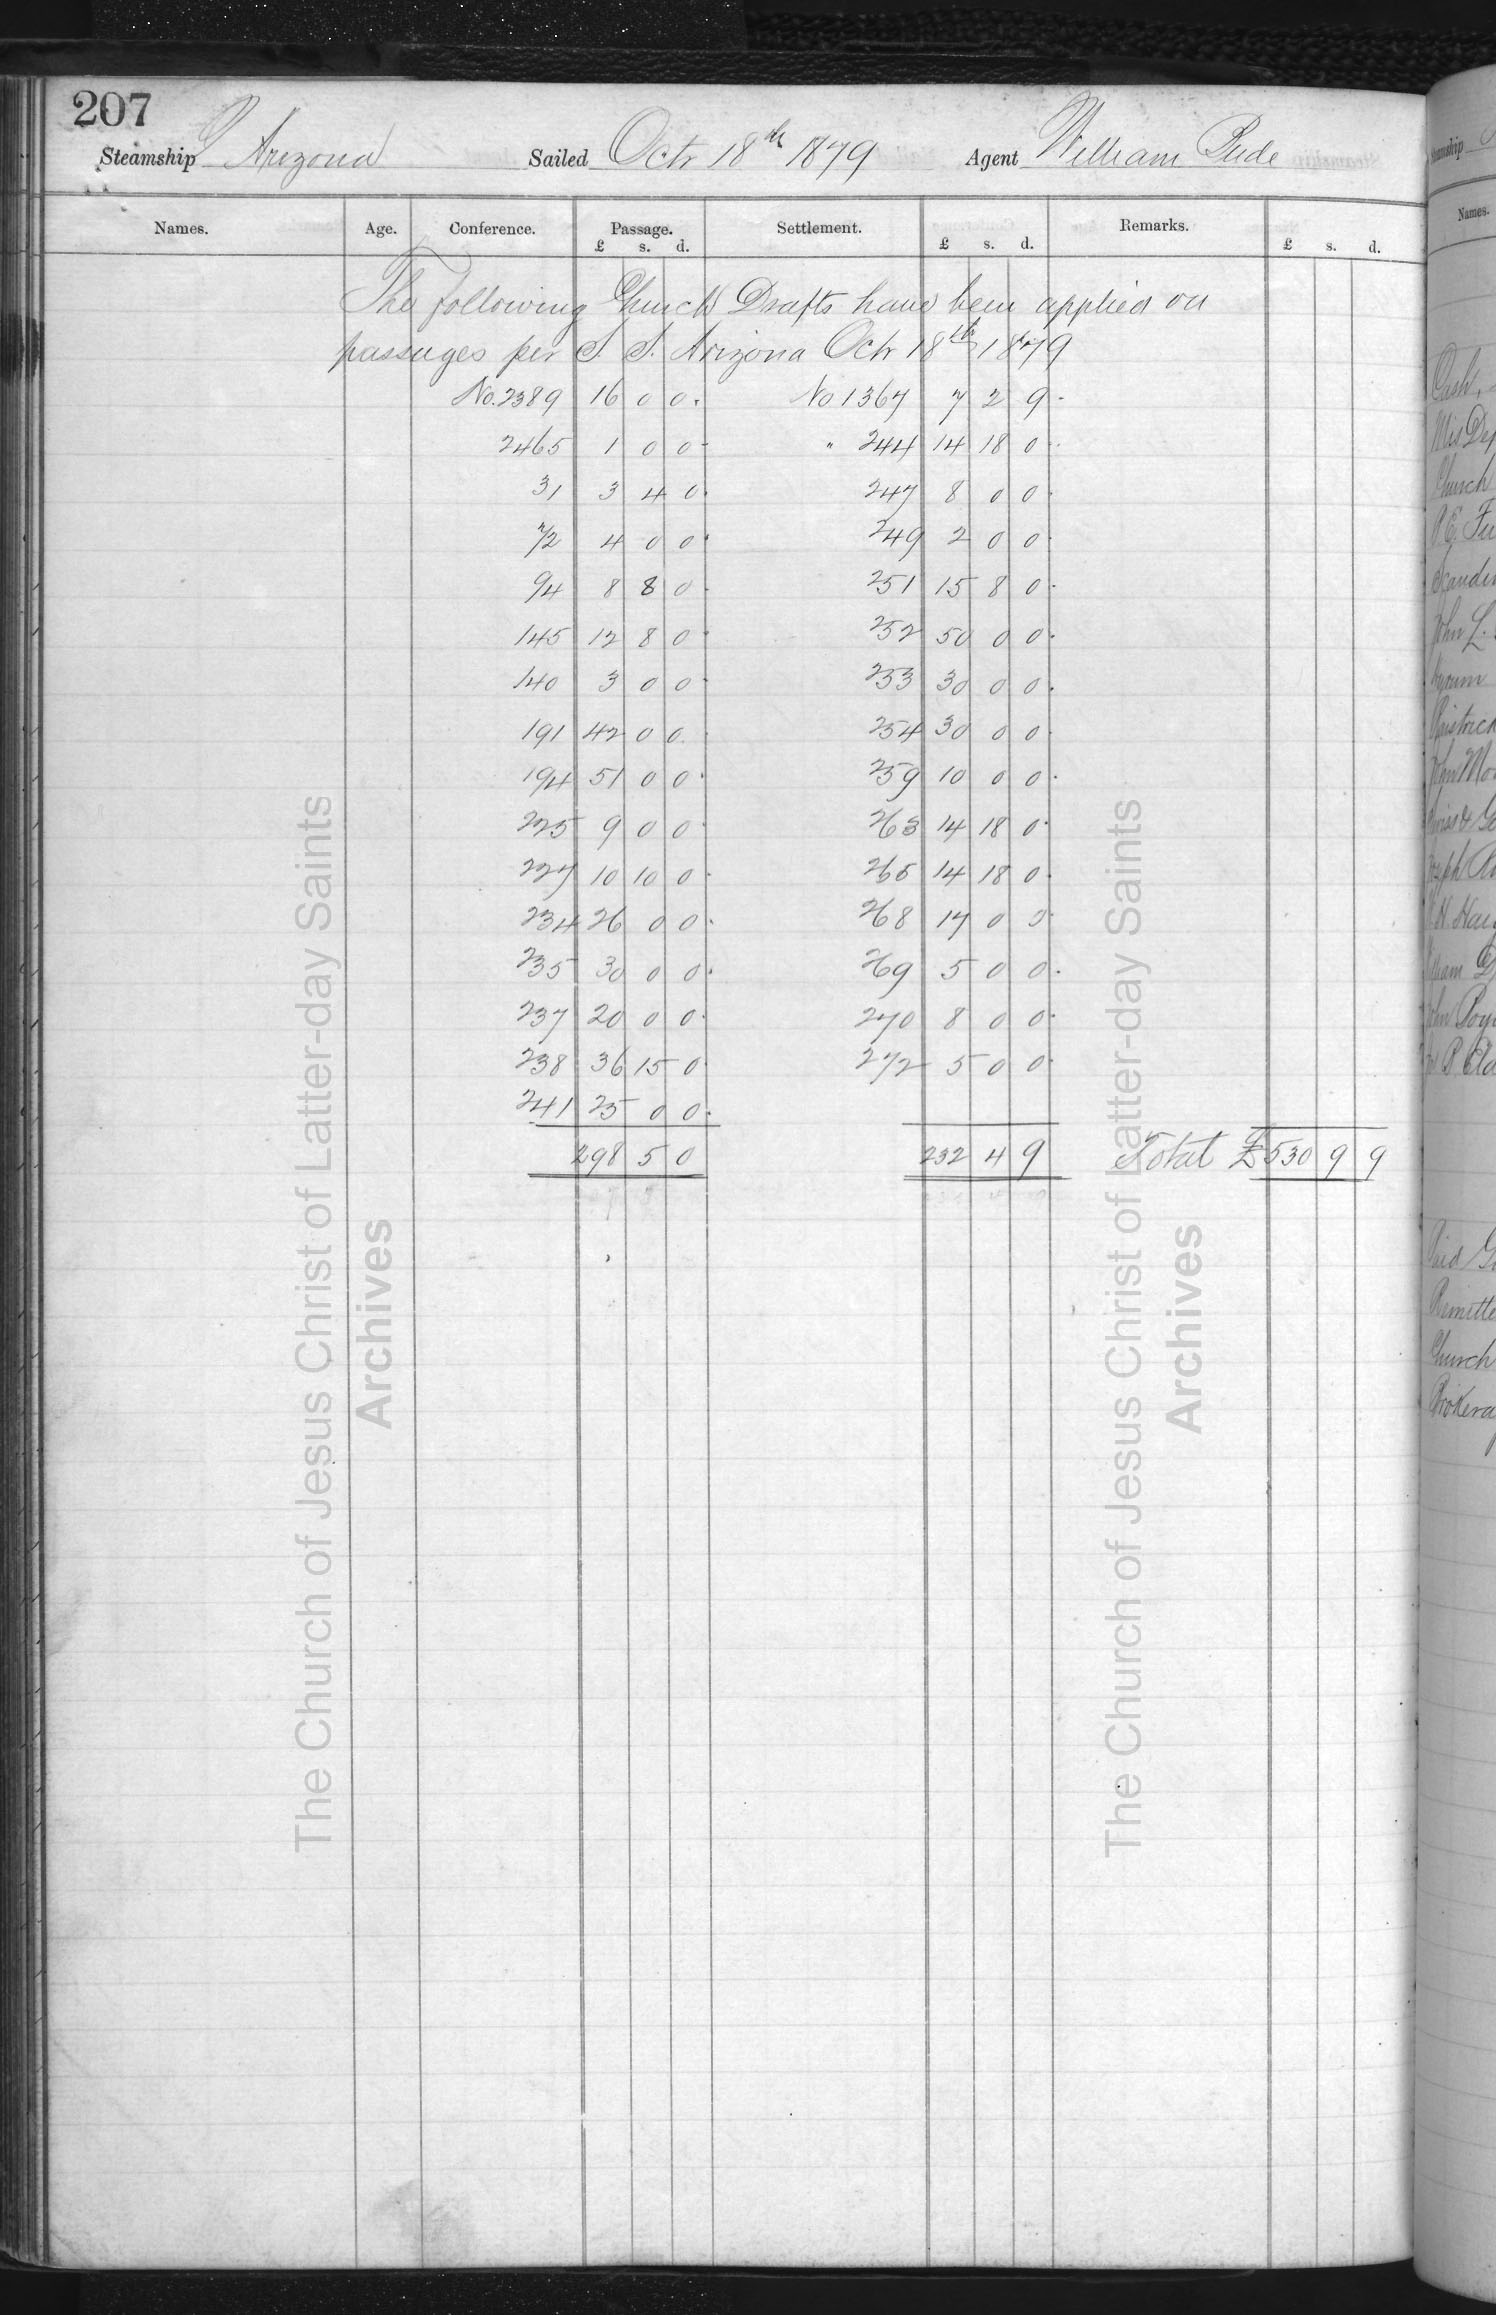 207
Steamship Arizona Sailed Octr 18th 1879 Agent William Bude
Names. Age. Conference. Passage. Settlement. Remarks.
£ s. d. £ s. d. £ s. d.
The following Church Drafts have been applied on
passages per S. S. Arizona Octr 18th 1879
No. 2389 16 0 0. No 1367 7 2 9.
2465 1 0 0 " 244 14 18 0
31 3 4 0. 247 8 0 0
72 4 0 0 249 2 0 0
94 8 8 0 251 15 8 0
145 12 8 0 252 50 0 0
140 3 0 0 253 30 0 0
191 42 0 0 254 30 0 0
194 51 0 0 259 10 0 0
225 9 0 0 263 14 18 0
227 10 10 0 265 14 18 0
234 26 0 0 268 17 0 0
235 30 0 0 269 5 0 0
237 20 0 0 270 8 0 0
238 36 15 0 272 5 0 0
241 25 0 0
298 5 0 232 4 9 Total £530 9 9
The Church of Jesus Christ of Latter-day Saints
Archives
The Church of Jesus Christ of Latter-day Saints
Archives
Steamship
Names.
Cash,
Church
Paid
Church